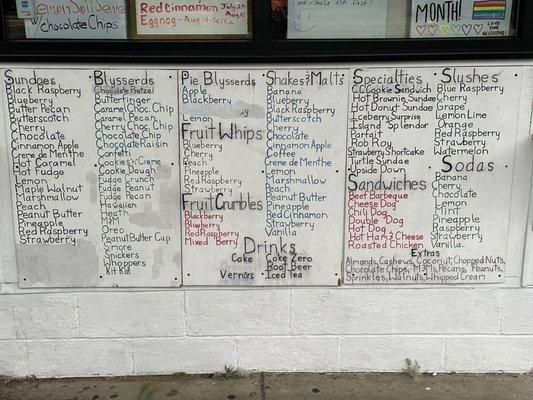 Lemon Soft Serve
Chocolate Chips
Red Cinnamon
July 4
Eggnog - Aug
please ask first!
MONTH!
LOVE YOUR
NEIGHBOR
Sundaes
Black Raspberry
Blueberry
Butter Pecan
Butterscotch
Cherry
Chocolate
Cinnamon Apple
Creme de Menthe
Hot Caramel
Hot Fudge
Lemon
Maple Walnut
Marshmallow
Peach
Peanut Butter
Pineapple
Red Raspberry
Strawberry
Blysserds
Chocolate Pretzel
Butterfinger
Caramel Choc. Chip
Caramel Pecan
Cherry Choc Chip
Chocolate Chip
Chocolate Raisin
Confetti
Cookies n' Creme
Cookie Dough
Fudge Crunch
Fudge Peanut
Fudge Pecan
Hawaiian
Heath
M&M
Oreo
Peanut Butter Cup
Smore
Snickers
Whoppers
Kit Kat
Pie Blysserds
Apple
Blackberry
Lemon
Fruit Whips
Blueberry
Cherry
Peach
Pineapple
Red Raspberry
Strawberry
Fruit Crumbles
Blackberry
Blueberry
Red Raspberry
Mixed Berry
Shakes? Malts
Banana
Blueberry
Black Raspberry
Butterscotch
Cherry
Chocolate
Cinnamon Apple
Coffee
Creme de Menthe
Lemon
Marshmallow
Peach
Peanut Butter
Pineapple
Red Cinnamon
Strawberry
Vanilla
Drinks
Coke
Coke Zero
Root Beer
Vernors
Iced Tea
Specialties
C.C. Cookie Sandwich
Hot Brownie Sundae
Hot Donut Sundae
Iceberg Surprise
Island Splendor
Parfait
Rob Roy
Strawberry Shortcake
Turtle Sundae
Upside Down
Sandwiches
Beef Barbeque
Cheese Dog
Chili Dog
Double Dog
Hot Dog
Hot Ham & Cheese
Roasted Chicken
Slushes
Blue Raspberry
Cherry
Grape
Lemon Lime
Orange
Red Raspberry
Strawberry
Watermelon
Sodas
Banana
Cherry
Chocolate
Lemon
Mint
Pineapple
Raspberry
Strawberry
Vanilla
Extras
Almonds, Cashews, Coconut, Chopped Nuts,
Chocolate Chips, M&Ms, Pecans, Peanuts,
Sprinkles, Walnuts, Whipped Cream